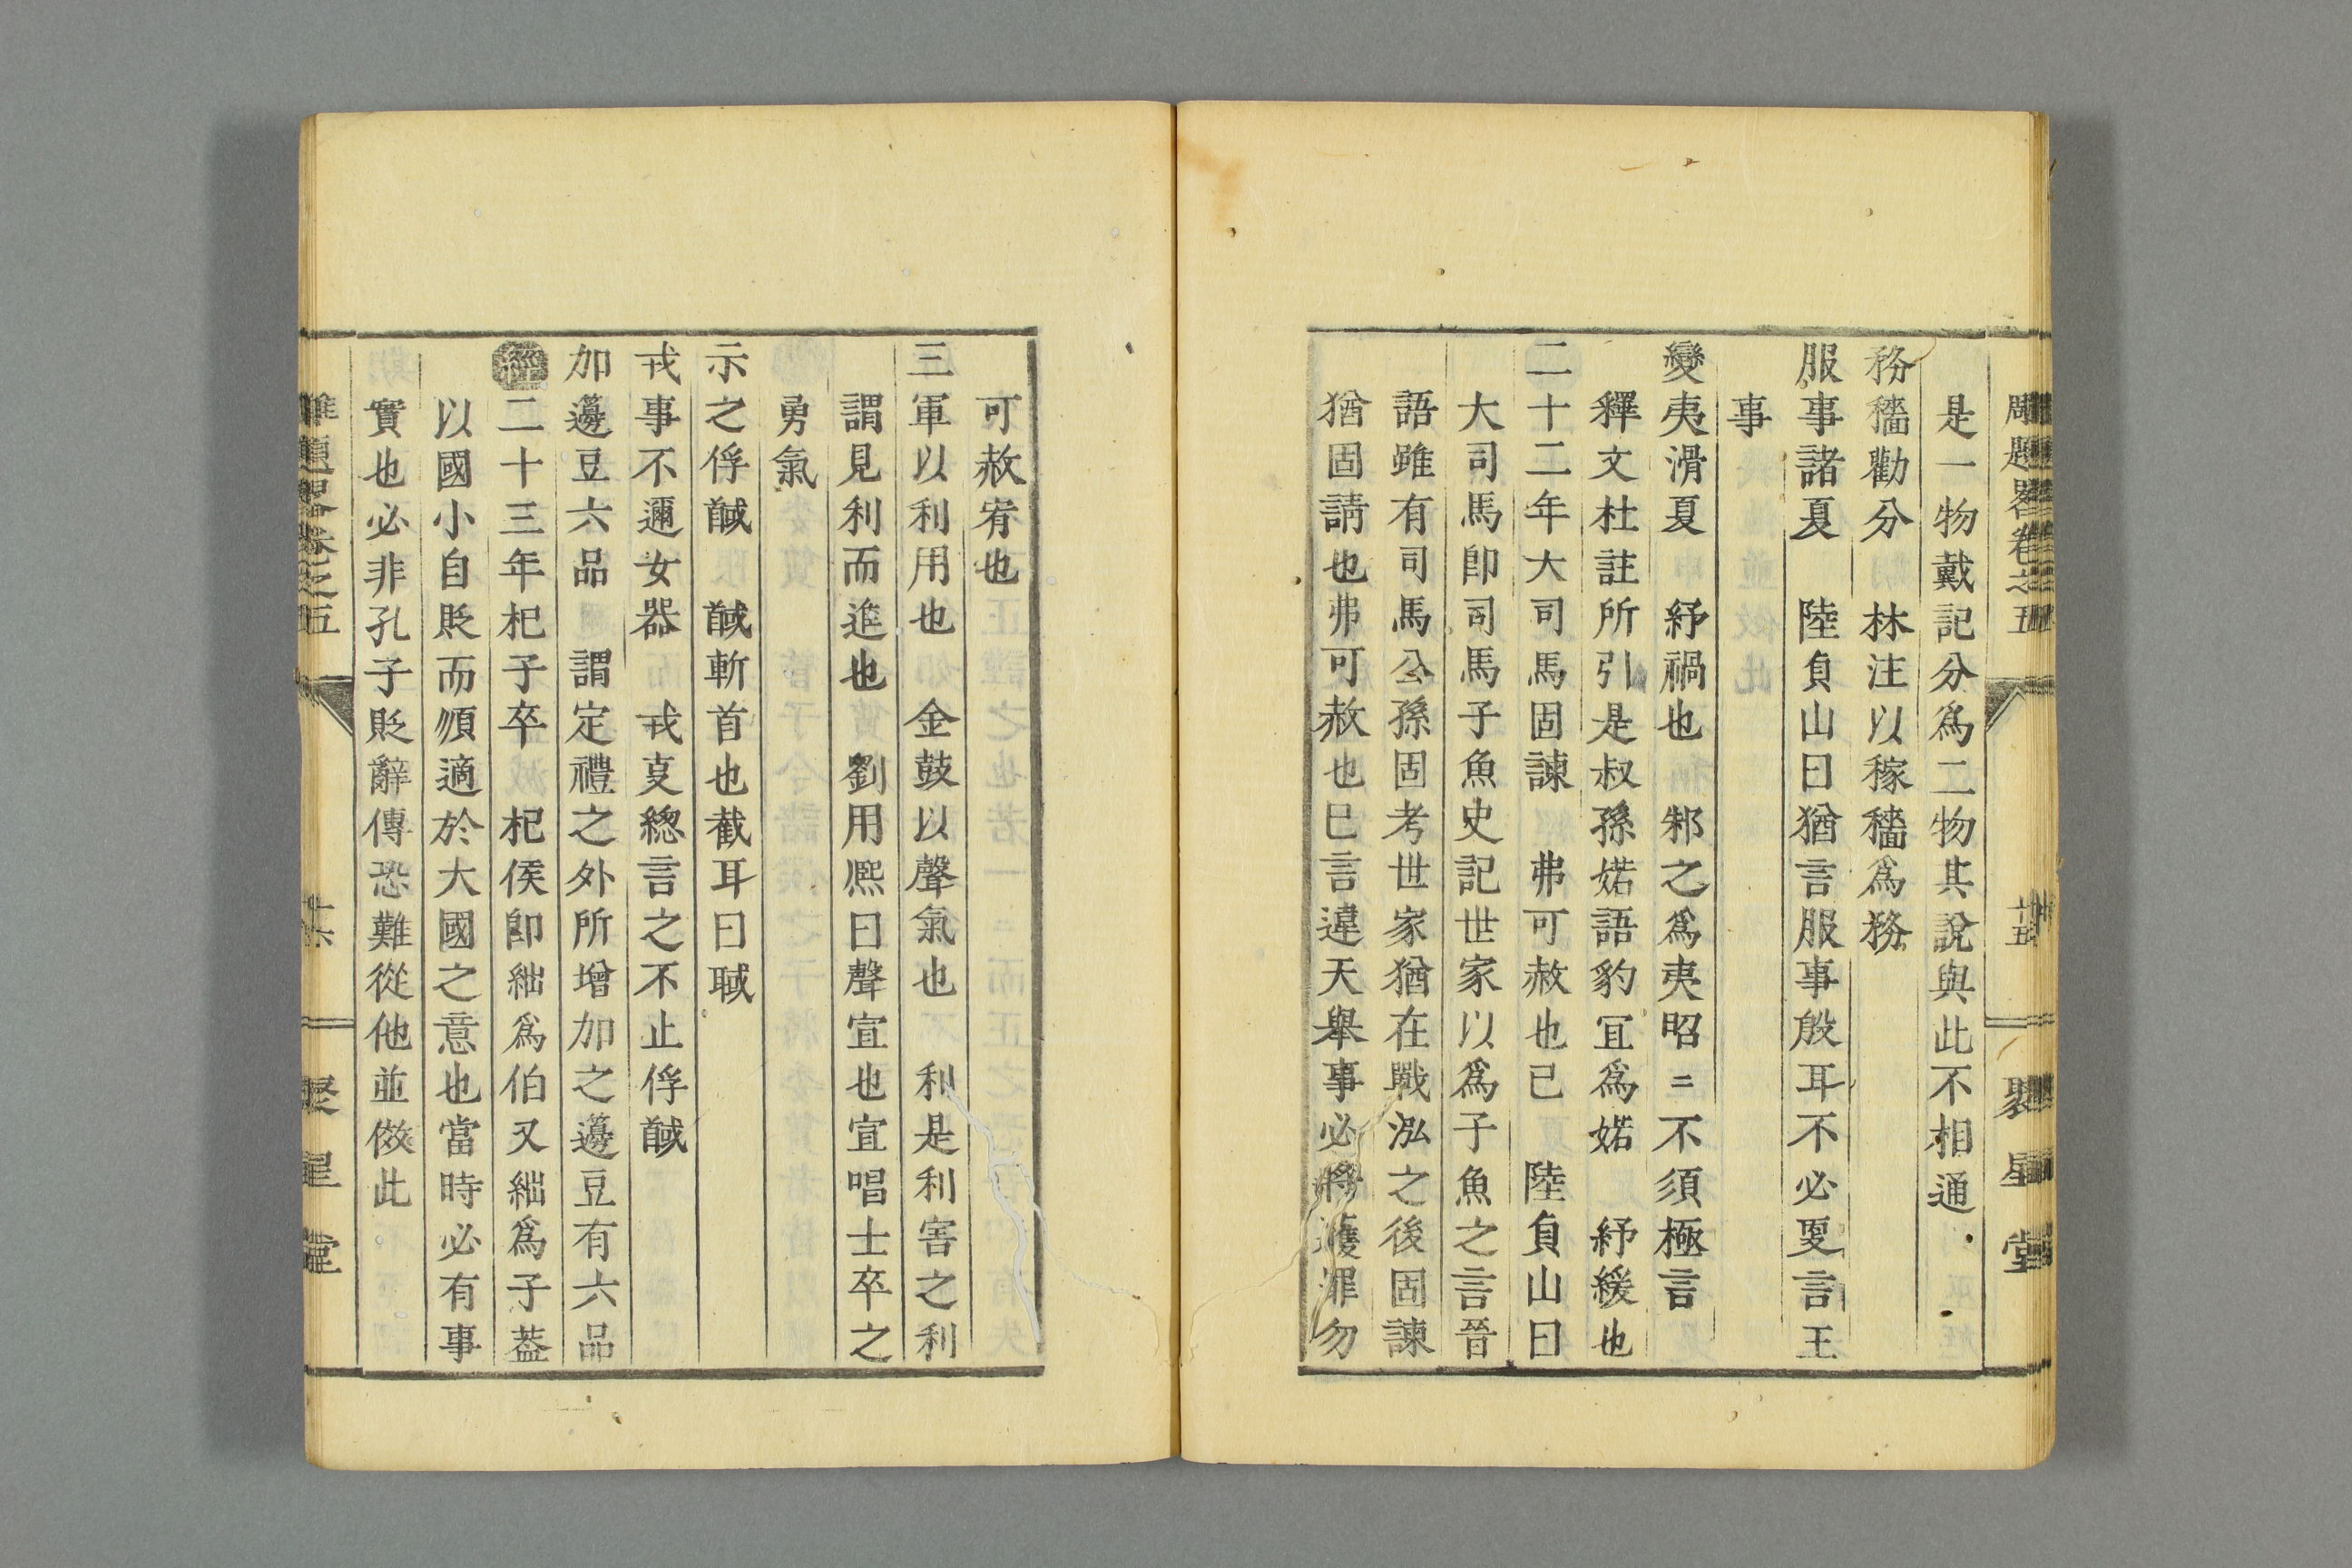 是一物戴記分為二物其說與此不相通
務穡勸分　林注以稼穡為務
服事諸夏　陸貟山曰猶言服事殷耳不必㪅言王
事
變夷滑夏　紓禍也　邾之為夷昭〻不須極言
釋文杜註所引是叔孫婼語豹冝為婼　紓緩也
二十二年大司馬固諫　弗可赦也已　陸貟山曰
大司馬卽司馬子魚史記世家以為子魚之言晉
語雖有司馬公孫固考世家猶在戰泓之後固諫
猶固請也弗可赦也巳言違天舉事必將獲罪勿
可赦宥也
三軍以利用也　金鼓以聲氣也　利是利害之利
謂見利而進也　劉用熈曰聲宣也宣唱士卒之
勇氣
示之俘馘　馘斬首也截耳曰聝
戎事不邇女器　戎㪅總言之不止俘馘
加籩豆六品　謂定禮之外所增加之籩豆有六品
經二十三年杞子卒　杞侯卽絀為伯又絀為子葢
以國小自貶而順適於大國之意也當時必有事
實也必非孔子貶辭傳恐難從他並倣此
雕題畧卷之五
聚星堂